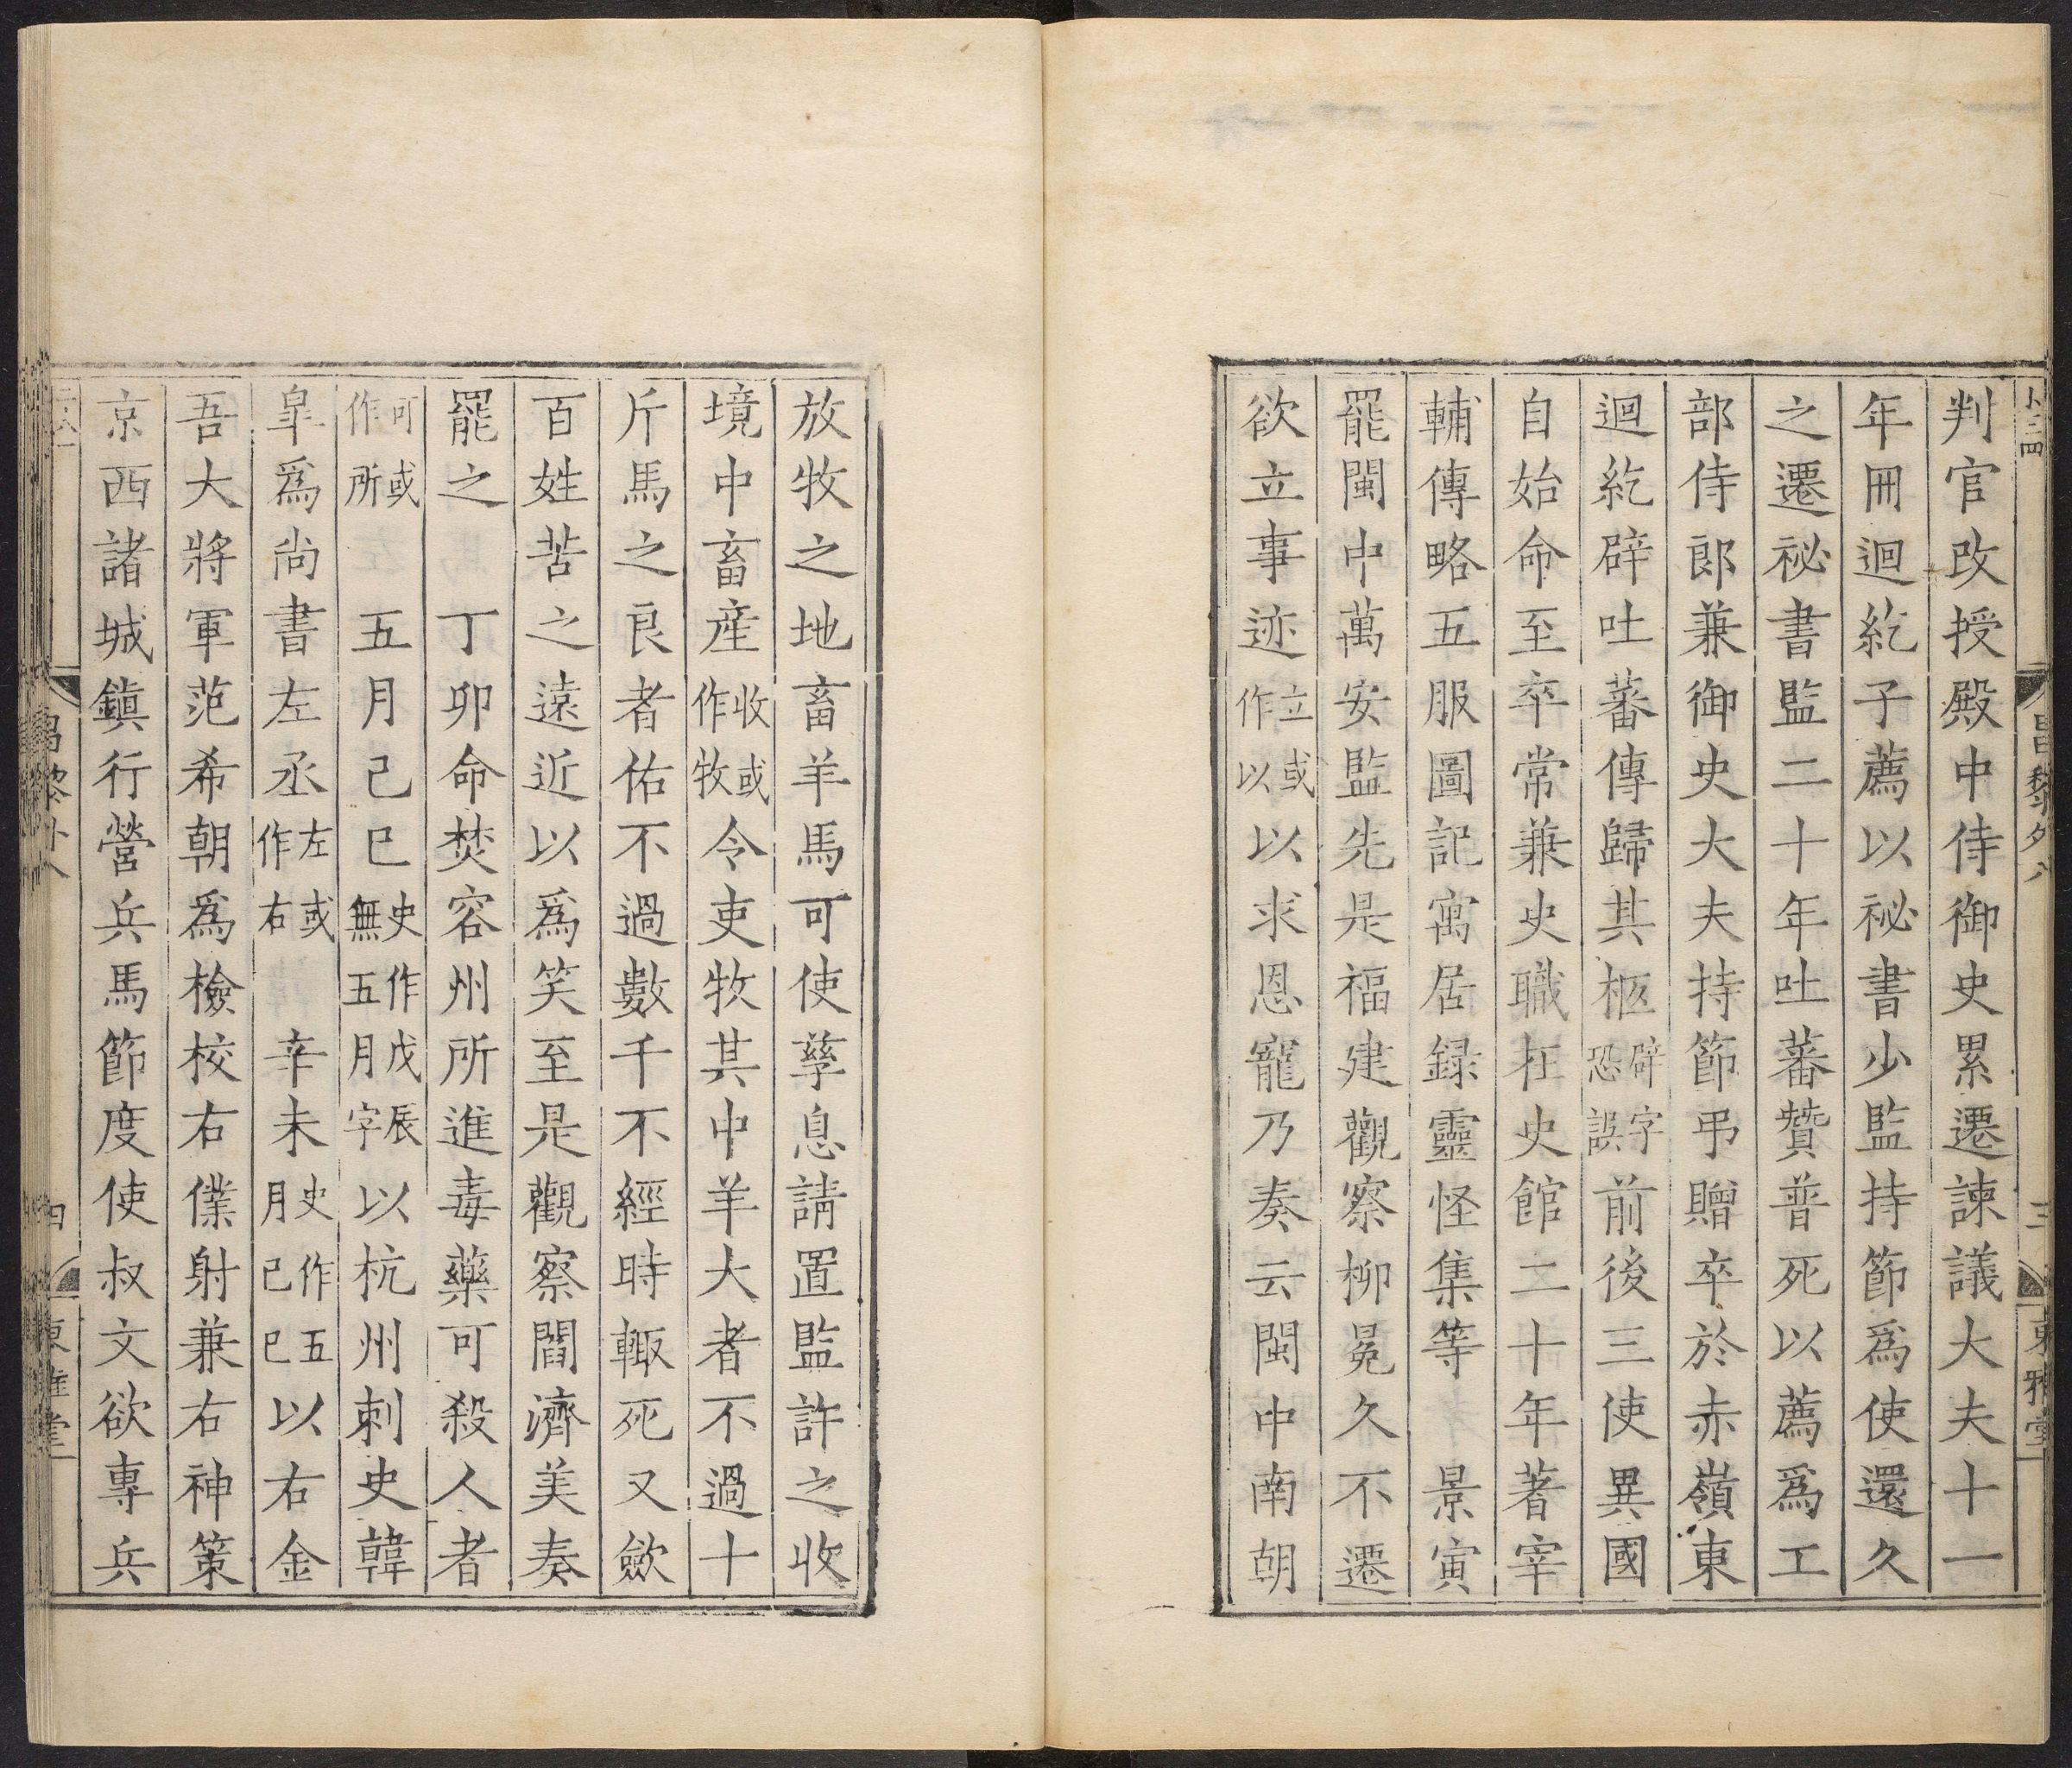 判官改授殿中侍御史累遷諫議大夫十一
年冊迴紇子薦以祕書少監持節爲使還久
之遷祕書監二十年吐蕃贊普死以薦爲工
部侍郎兼御史大夫持節弔贈卒於赤嶺東
迴紇辟吐蕃傳歸其柩辟字恐誤前後三使異國
自始命至卒常兼史職在史館二十年著宰
輔傳略五服圖記寓居録靈怪集等　景寅
罷閩中萬安監先是福建觀察柳冕久不遷
欲立事迹立或作以以求恩寵乃奏云閩中南朝
昌黎外八　三　東雅堂
放牧之地畜羊馬可使孳息請置監許之收
境中畜産收或作牧令吏牧其中羊大者不過十
斤馬之良者佑不過數千不經時輙死又斂
百姓苦之遠近以爲笑至是觀察閻濟美奏
罷之　丁卯命焚容州所進毒藥可殺人者
可或作所　五月己巳史作戊辰無五月字以杭州刺史韓
皐爲尚書左丞左或作右　辛未史作五月己巳以右金
吾大將軍范希朝爲檢校右僕射兼右神策
京西諸城鎮行營兵馬節度使叔文欲專兵
昌黎外八　四　東雅堂